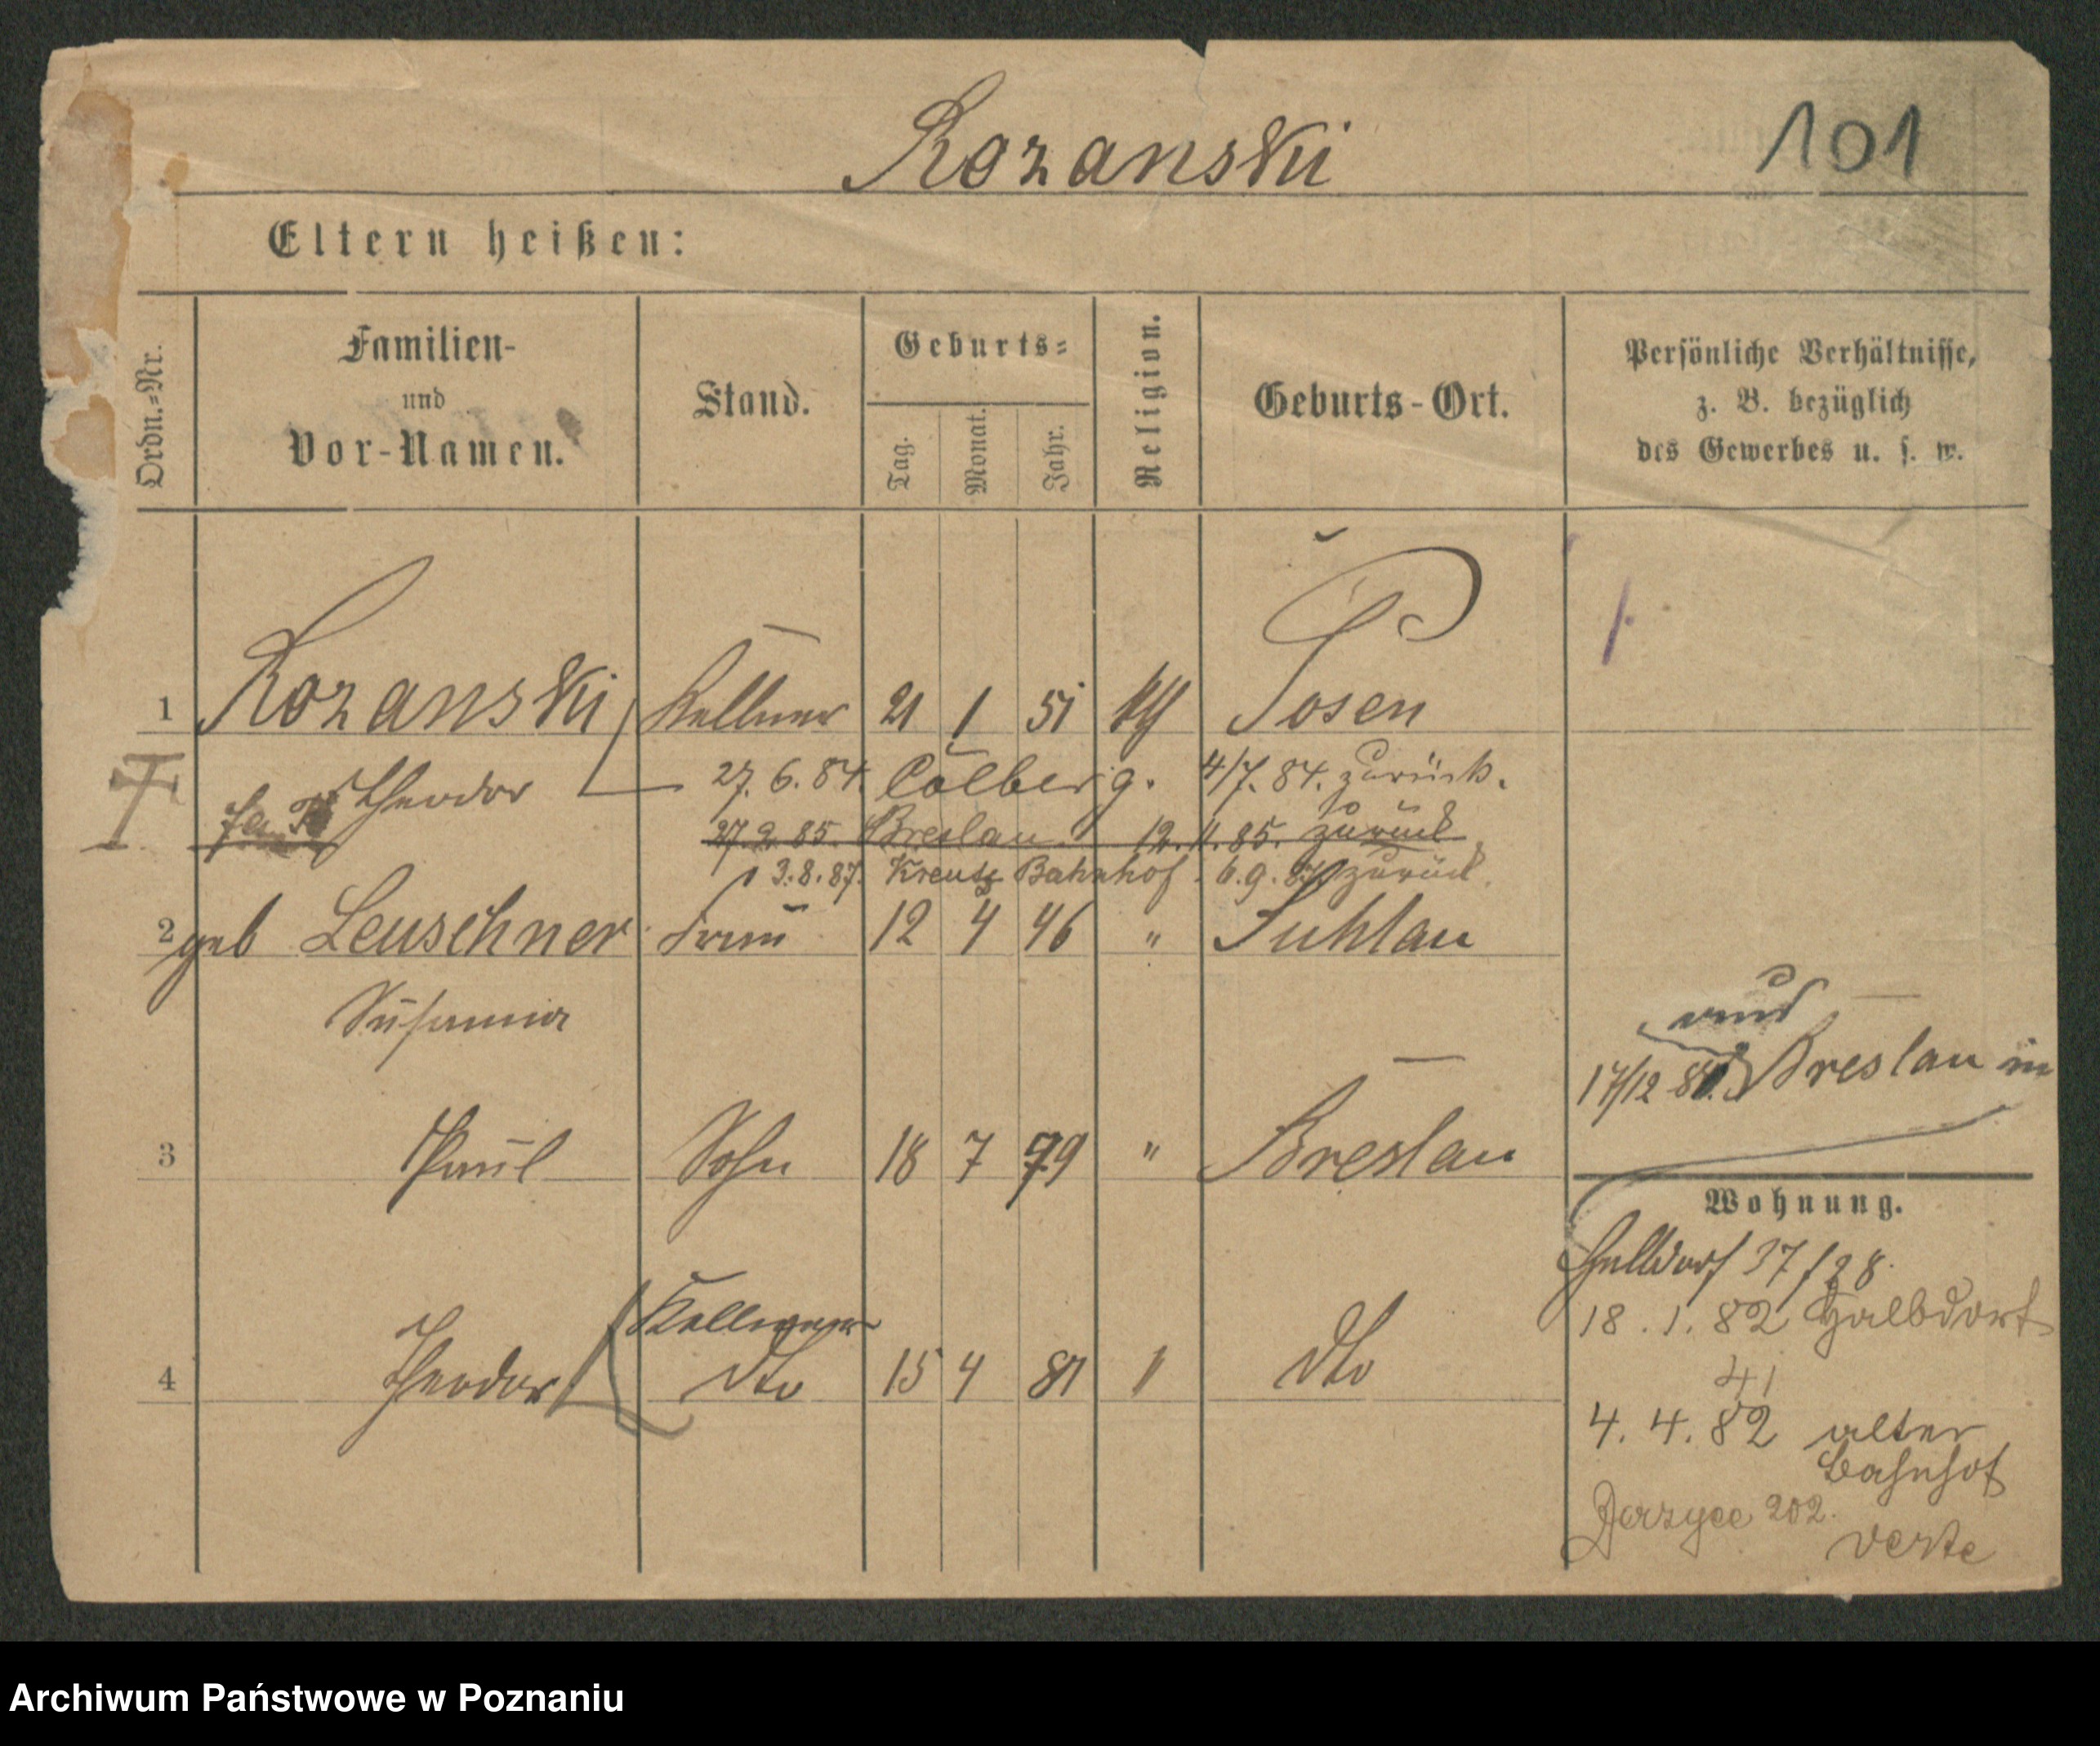 Rozanski 101
Eltern heißen:
Ordn.=Nr.
Familien-
und
Vor-Namen.
Stand.
Geburts=
Tag.
Monat.
Jahr.
Religion.
Geburts-Ort.
Persönliche Verhältnisse,
z. B. bezüglich
des Gewerbes u. s. w.
1 Rozanski Kellner 21 1 51 Posen
Theodor 27. 6. 84. Colberg. 4/7. 84. zurück.
27. 2. 85. Breslau. 12. 11. 85. zurück
3. 8. 87. Kreutz Bahnhof. 6. 9. 87 zurück.
2 geb Leuschner Frau 12 4 46 " Suhlau
Susanna
und
17/12 81. Breslau in
3 Paul Sohn 18 7 79 " Breslau
Wohnung.
Halbdorf 37 / 28.
18. 1. 82 Halbdorf
41
Kellner
4 Theodor dto 15 4 81 " dto
4. 4. 82 alter
Bahnhof
Jerzyce 202.
verte
Archiwum Państwowe w Poznaniu